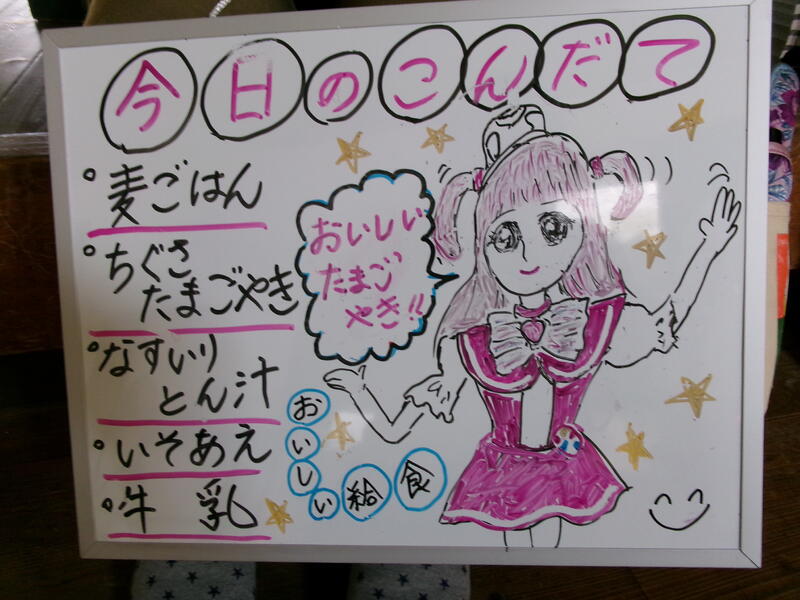 今日のこんだて
・麦ごはん
・ちぐさ
たまごやき
・なすいり
とん汁
・いそあえ
・牛乳
おいしい
たまご
やき!!
おいしい給食